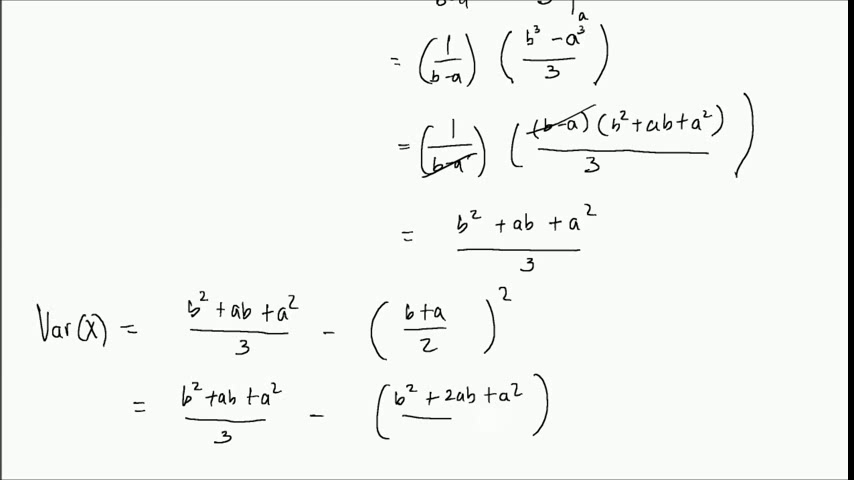 = (1/(b-a)) ((b³ - a³)/3)
= (1/(b-a)) (((b-a)(b² + ab + a²))/3)
= (b² + ab + a²)/3
Var(X) = (b² + ab + a²)/3 - ((b+a)/2)²
= (b² + ab + a²)/3 - (b² + 2ab + a²)